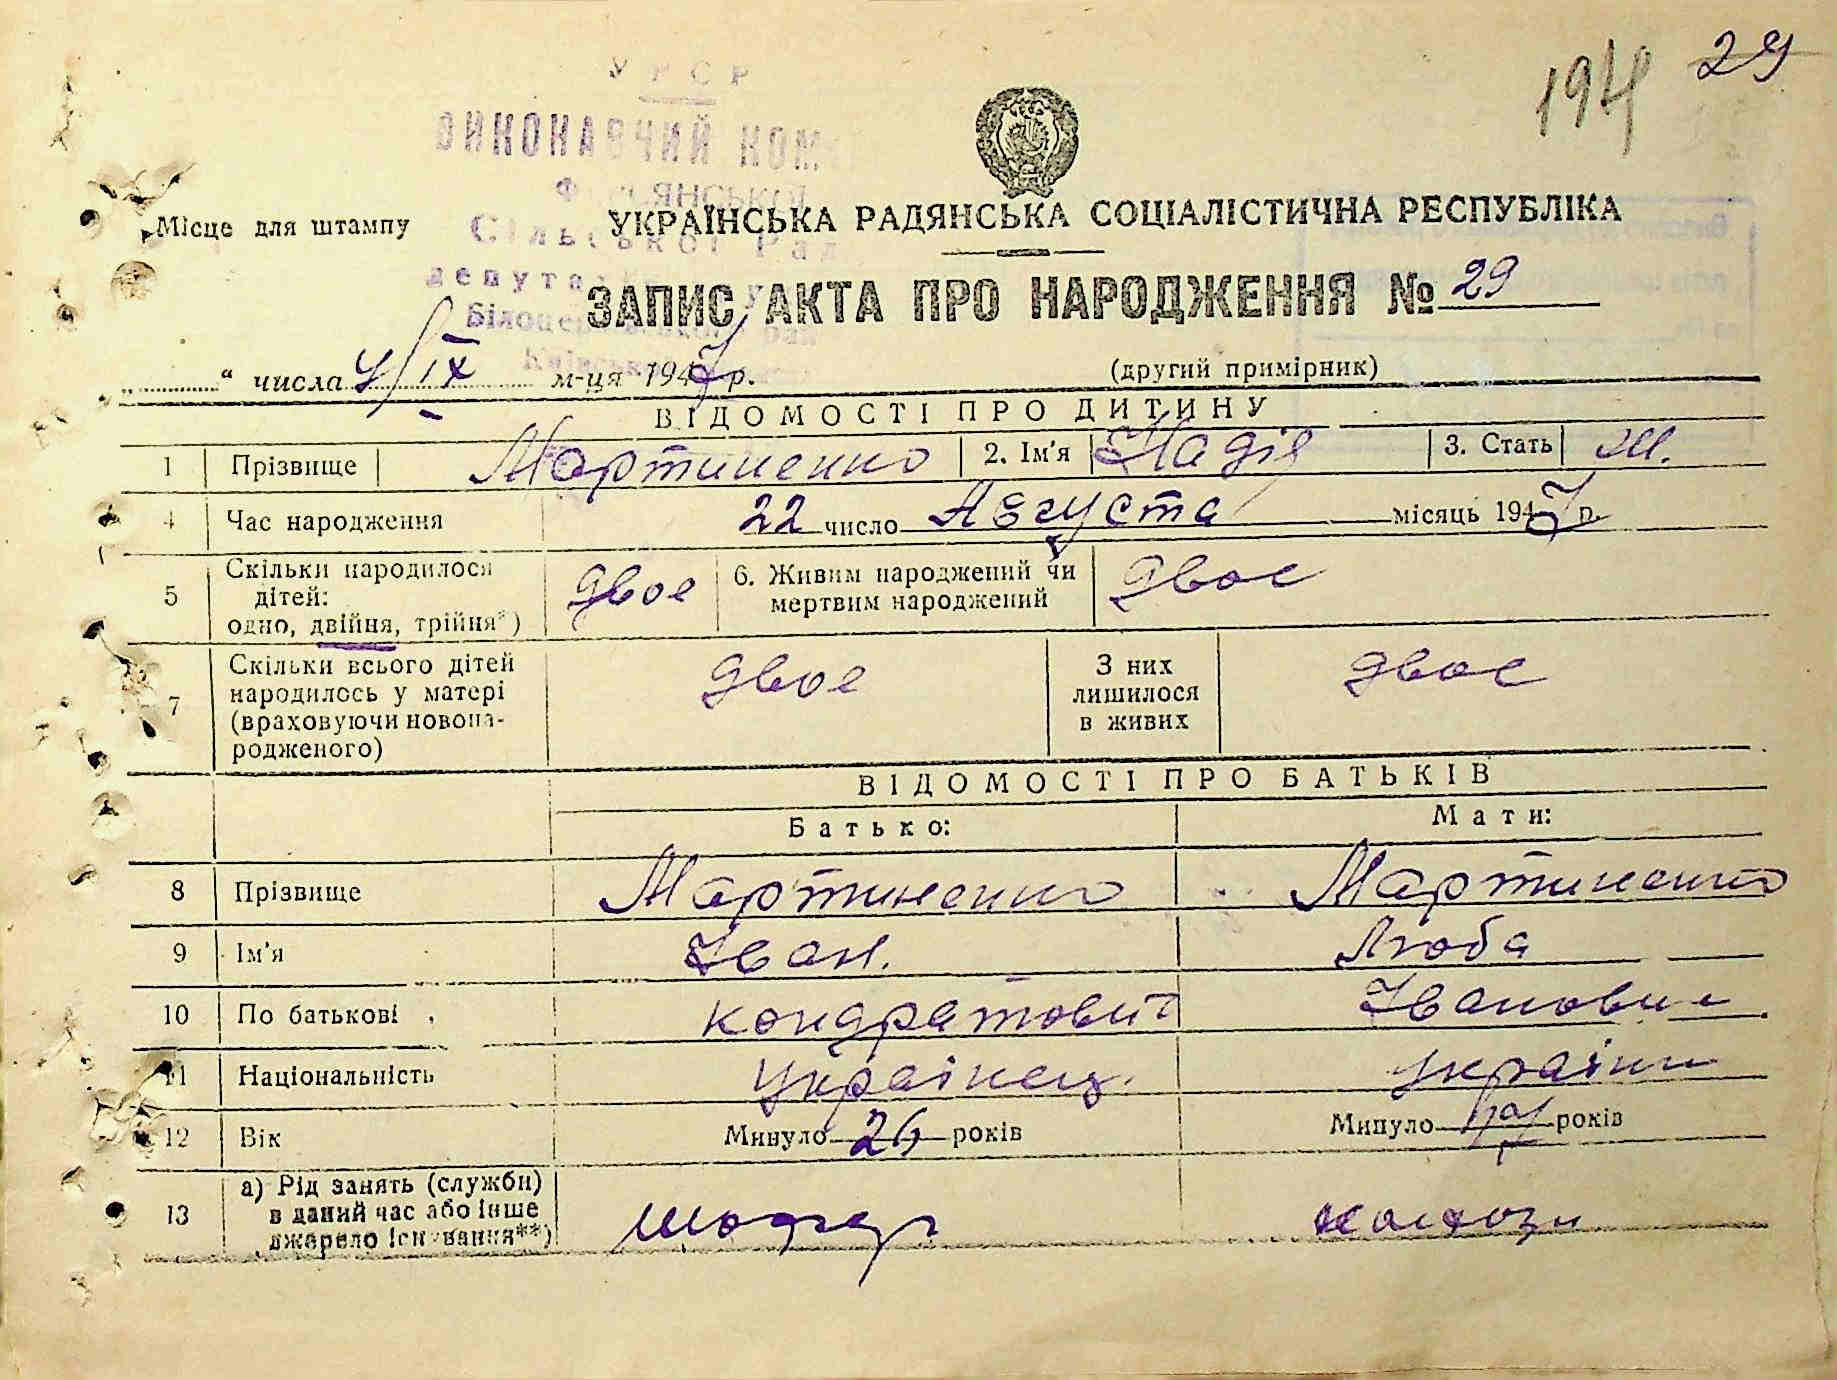 29
194
УРСР
ВИКОНАВЧИЙ КОМ
ЯНСЬКОЇ
Місце для штампу
УКРАЇНСЬКА РАДЯНСЬКА СОЦІАЛІСТИЧНА РЕСПУБЛІКА
Сільської Рад
депута
ЗАПИС АКТА ПРО НАРОДЖЕННЯ № 29
„ “ числа 4/IX м-ця 1947 р. (другий примірник)
ВІДОМОСТІ ПРО ДИТИНУ
1 Прізвище Мартиненко 2. Ім'я Надія 3. Стать ж.
4 Час народження 22 число Августа місяць 1947 р.
5 Скільки народилося дітей: одно, двійня, трійня*) двое 6. Живим народжений чи мертвим народжений двое
7 Скільки всього дітей народилось у матері (враховуючи новонародженого) двое З них лишилося в живих двое
ВІДОМОСТІ ПРО БАТЬКІВ
Батько: Мати:
8 Прізвище Мартиненко Мартиненко
9 Ім'я Іван. Люба
10 По батькові Кондратович Івановн
11 Національність Українець. україн
12 Вік Минуло 26 років Минуло років
13 а) Рід занять (служби) в даний час або інше джерело існування**) шофер колхозн